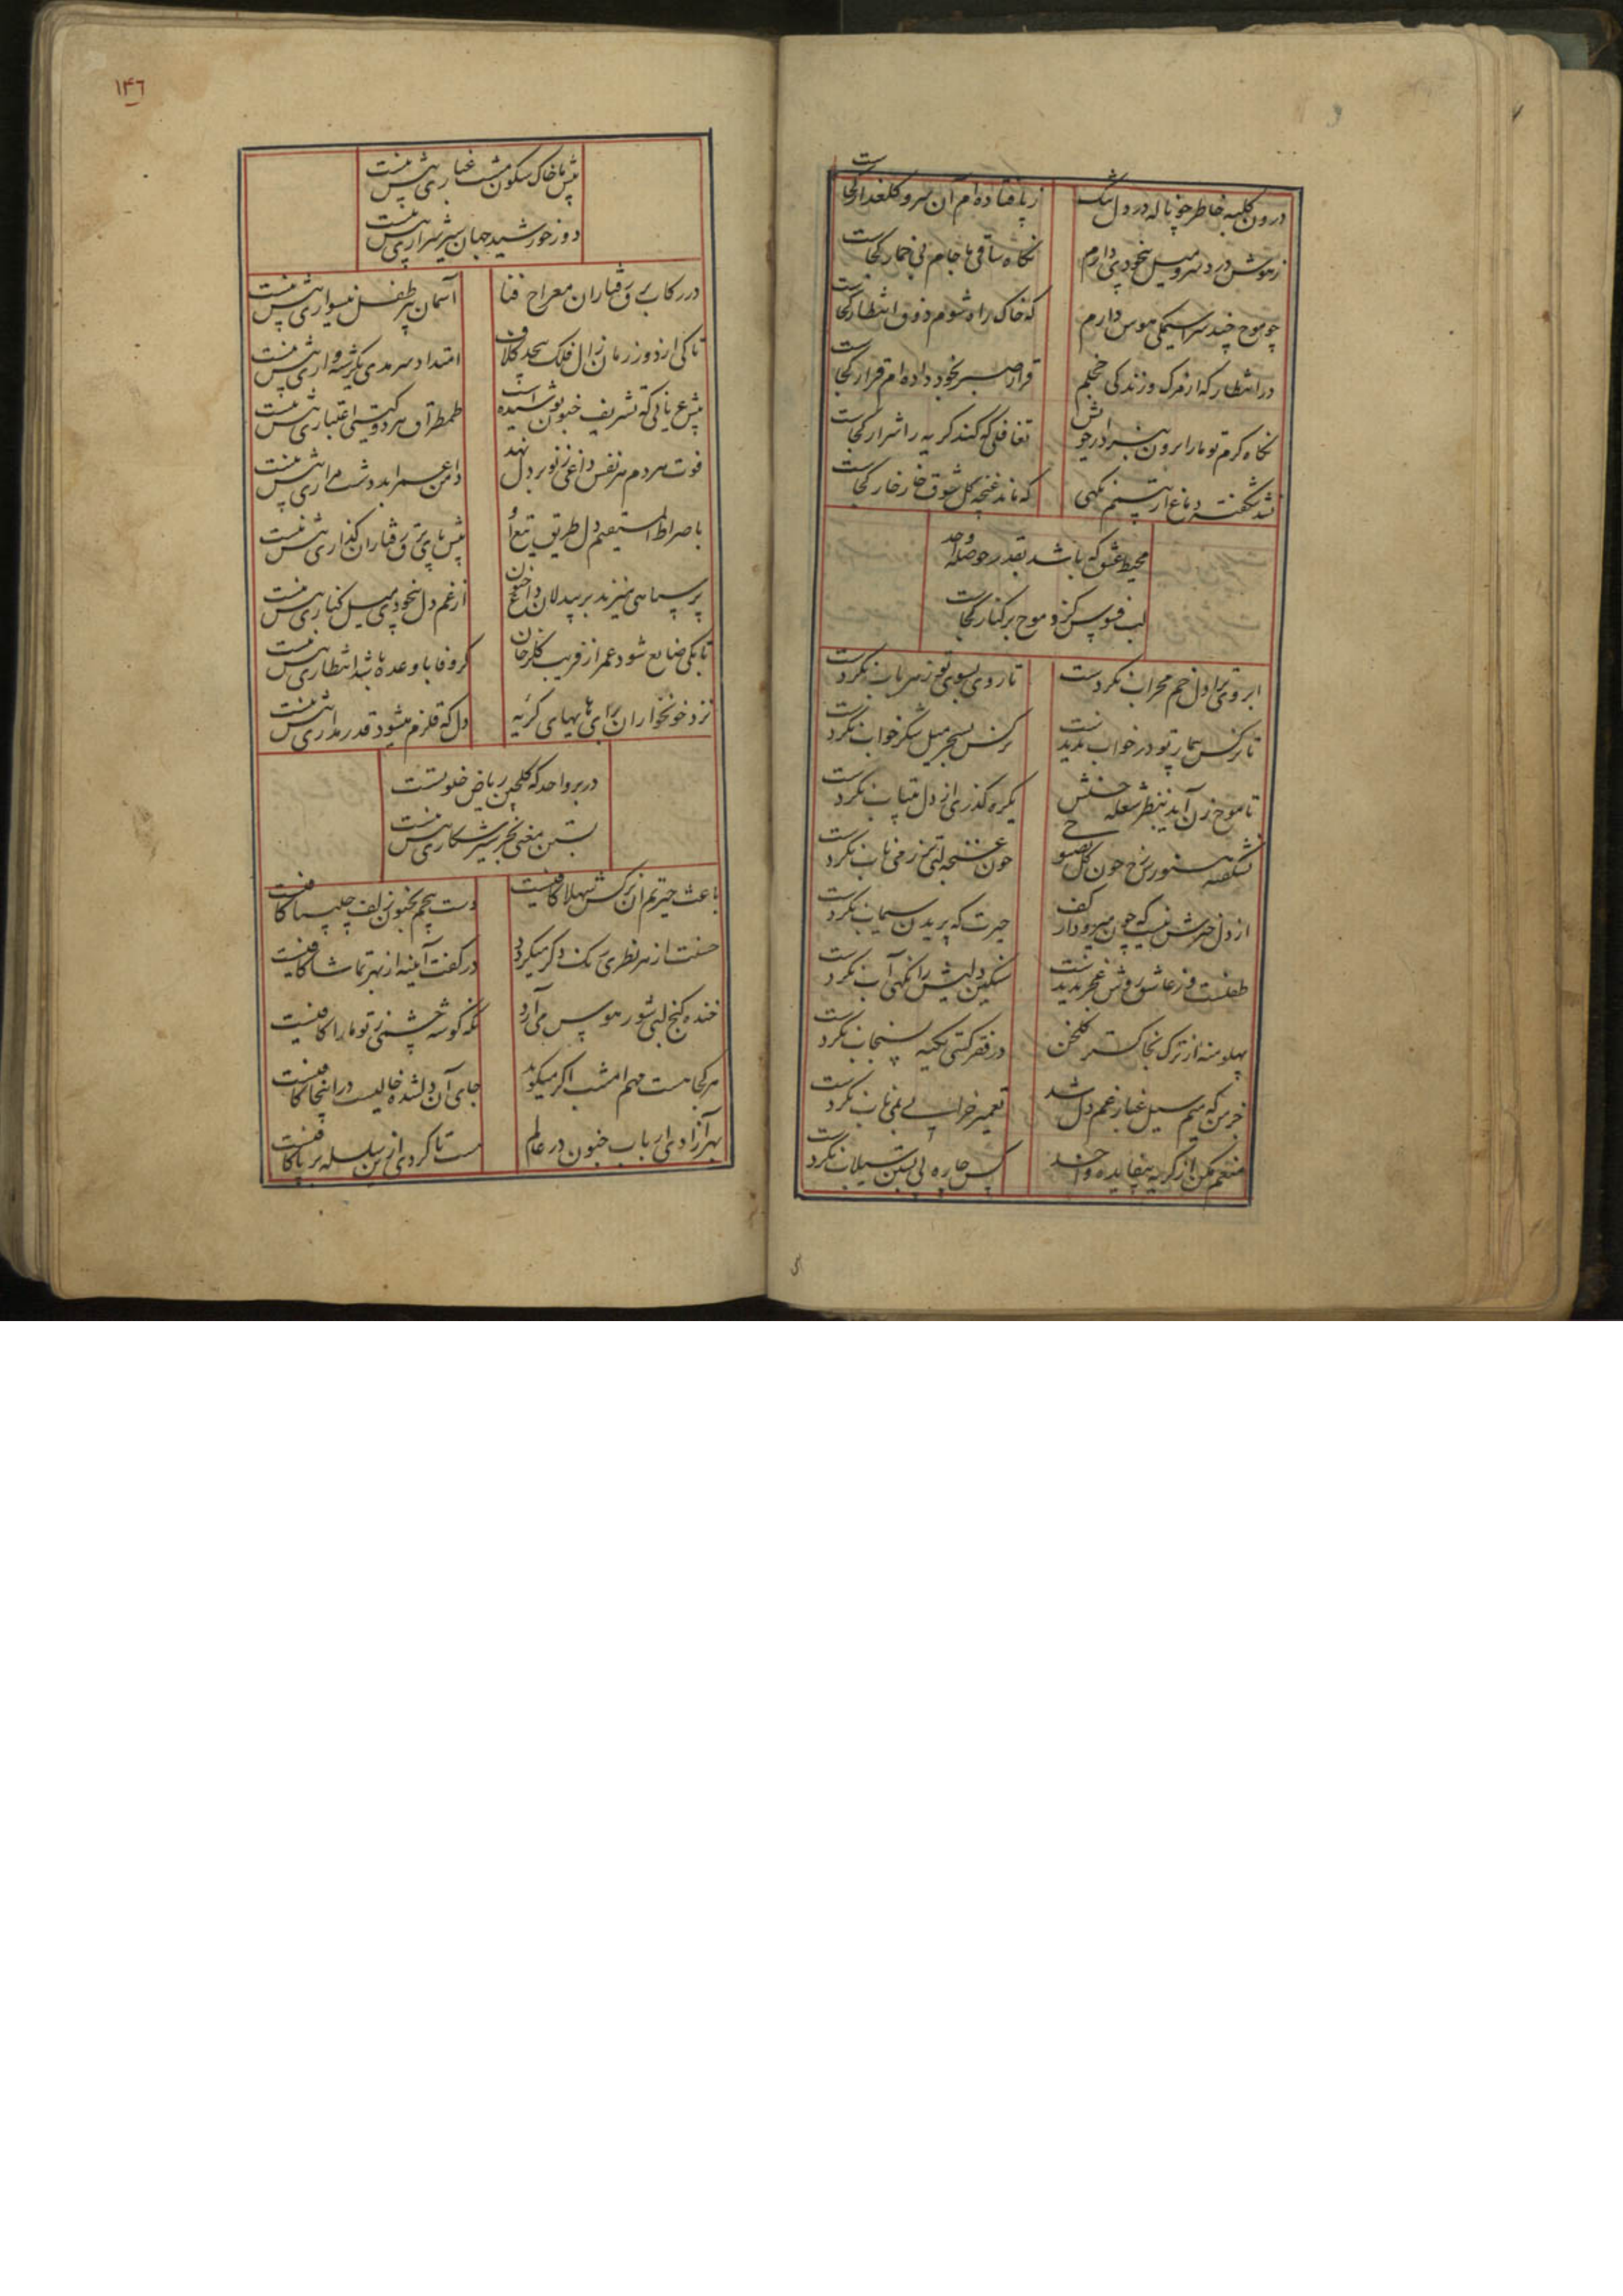 درون کلبه خاطر چو ناله در دل تنگ
ز پا فتاده‌ام آن سرو گلعذار کجاست
ز هوش درد سر و میل بیخودی دارم
نگاه ساقی ما جام بی خمار کجاست
چو موج چند سراسیمگی هوس دارم
که خاک راه شوم ذوق انتظار کجاست
در انتظار که از مرگ و زندگی خجلم
قرار صبر بخود داده‌ام قرار کجاست
نگاه گرم تو ما را برون
تغافلی که کند گریه را شرار کجاست
نشد شکفته دماغ از نسیم نگهی
که ماند غنچه گل شوق خار خار کجاست
محیط عشق که باشد بقدر حوصله واحد
لب فسوس کزو موج بر کنار کجاست
ابروی ترا دل خم محراب نکردست
تا روی بسوی تو ز هر باب نکردست
تا نرگس بیمار تو در خواب ندیدست
نرگس بسحر میل شکر خواب نکردست
تا موج زن آید بنظر شعله حسنش
یکره گذری از دل بیتاب نکردست
نشکفته هنوز رخ چون گل بصبوح
چون غنچه لبی تر ز می ناب نکردست
از دل خبرش نیست که چون میرود از کف
حیرت که پریدن سیماب نکردست
طفلست و ز عاشق روش عجز ندیدست
سنگین دلیش را نگهی آب نکردست
پهلو منه از ترک بخاکستر گلخن
در فقر کسی تکیه بسنجاب نکردست
خرمن که میم سیل غبار غم دل شد
تعمیر خراب بی می ناب نکردست
منعم مکن از گریه بیفایده واحد
کس چاره لی بستن سیلاب نکردست
۱۴۶
پیش ما خاک سکون مشت غباری بیش نیست
دوزخ خورشید جهان سیر شراری بیش نیست
در رکاب برق رفتاران معراج فنا
آسمان پیر طفل نیسواری بیش نیست
تا کی از دوز زمان زال فلک پیچد کلاف
امتداد سرمدی یکرشته واری بیش نیست
پیش عریانی که تشریف جنون پوشیده است
طمطراق هر دو گیتی اعتباری بیش نیست
فوت هر دم هر نفس داغی ز نو بر دل نهد
دامن عمر ابد وشت مزاری بیش نیست
با صراط المستقیم دل طریق
پیش پای برق رفتاران گذاری بیش نیست
پر سیاهی میزند بر بیدلان داغ جنون
از غم دل بیخودی میل کناری بیش نیست
تا بکی ضایع شود عمر از فریب گلرخان
گر وفا با وعده باشد انتظاری بیش نیست
نزد خونخواران برای هایهای گریه
دل که قلزم میشود قدر مداری بیش نیست
در بر واحد که گلچین ریاض خلوتست
بستن معنی بجز سیر شکاری بیش نیست
باعث حیرتم آن نرگس شهلا کافیست
دست پیچم بجنون زلف چلیپا کافیست
حسنت از هر نظری رنگ دگر میگیرد
در کفت آینه از بهر تماشا کافیست
خنده کنج لبی شور هوس می‌آرد
نگه گوشه چشمی ز تو ما را کافیست
هر کجا هست مهم امشب اگر میگوید
جای آن دلشده خالیست در اینجا کافیست
بهر آزادی ارباب جنون در عالم
هست تا گردی ازین سلسله بر پا کافیست